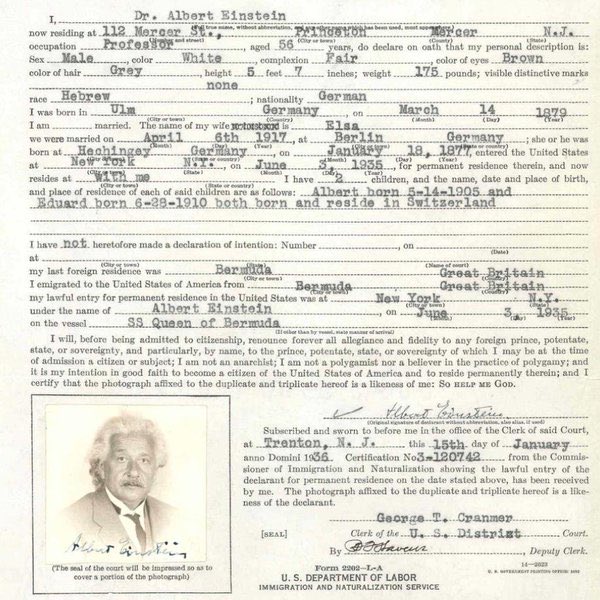 I, Dr. Albert Einstein
now residing at 112 Mercer St., Princeton Mercer N.J.
(Number and street) (City or town) (County) (State)
occupation Professor, aged 56 years, do declare on oath that my personal description is:
Sex Male, color White, complexion Fair, color of eyes Brown
color of hair Grey, height 5 feet 7 inches; weight 175 pounds; visible distinctive marks
none
race Hebrew; nationality German
I was born in Ulm Germany, on March 14 1879
(City or town) (Country) (Month) (Day) (Year)
I am married. The name of my wife is Elsa
we were married on April 6th 1917, at Berlin Germany; she or he was
(Month) (Day) (Year) (City or town) (State or country)
born at Hechingey Germany, on January 18, 1877, entered the United States
at New York N.Y., on June 3, 1935, for permanent residence therein, and now
resides at With me I have 2 children, and the name, date and place of birth,
and place of residence of each of said children are as follows: Albert born 5-14-1905 and
Eduard born 6-28-1910 both born and reside in Switzerland
I have not heretofore made a declaration of intention: Number, on
(Date)
at
(City or town) (State) (Name of court)
my last foreign residence was Bermuda Great Britain
(City or town) (Country)
I emigrated to the United States of America from Bermuda Great Britain
(City or town) (Country)
my lawful entry for permanent residence in the United States was at New York N.Y.
(City or town) (State)
under the name of Albert Einstein, on June 3, 1935
(Month) (Day) (Year)
on the vessel SS Queen of Bermuda
(If other than by vessel, state manner of arrival)
I will, before being admitted to citizenship, renounce forever all allegiance and fidelity to any foreign prince, potentate,
state, or sovereignty, and particularly, by name, to the prince, potentate, state, or sovereignty of which I may be at the time
of admission a citizen or subject; I am not an anarchist; I am not a polygamist nor a believer in the practice of polygamy; and
it is my intention in good faith to become a citizen of the United States of America and to reside permanently therein; and I
certify that the photograph affixed to the duplicate and triplicate hereof is a likeness of me: SO HELP ME GOD.
Albert Einstein.
(Original signature of declarant without abbreviation, also alias, if used)
Subscribed and sworn to before me in the office of the Clerk of said Court,
at Trenton, N. J. this 15th day of January
anno Domini 1936. Certification No 3-120742 from the Commis-
sioner of Immigration and Naturalization showing the lawful entry of the
declarant for permanent residence on the date stated above, has been received
by me. The photograph affixed to the duplicate and triplicate hereof is a like-
ness of the declarant.
George T. Cranmer
[SEAL] Clerk of the U. S. District Court.
By Deputy Clerk.
Albert Einstein
(The seal of the court will be impressed so as to
cover a portion of the photograph)
Form 2202-L-A
U. S. DEPARTMENT OF LABOR
IMMIGRATION AND NATURALIZATION SERVICE
14-2623
U. S. GOVERNMENT PRINTING OFFICE